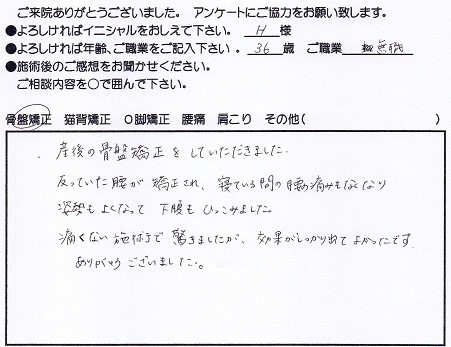 ご来院ありがとうございました。 アンケートにご協力をお願い致します。
●よろしければイニシャルをおしえて下さい。 H 様
●よろしければ年齢、ご職業をご記入下さい。 36 歳 ご職業 無職
●施術後のご感想をお聞かせください。
ご相談内容を○で囲んで下さい。
骨盤矯正 猫背矯正 O脚矯正 腰痛 肩こり その他( )
産後の骨盤矯正をしていただきました。
反っていた腰が矯正され、寝ている間の腰の痛みもなくなり
姿勢もよくなって下腹もひっこみました。
痛くない施術で驚きましたが、効果がしっかり出てよかったです。
ありがとうございました。